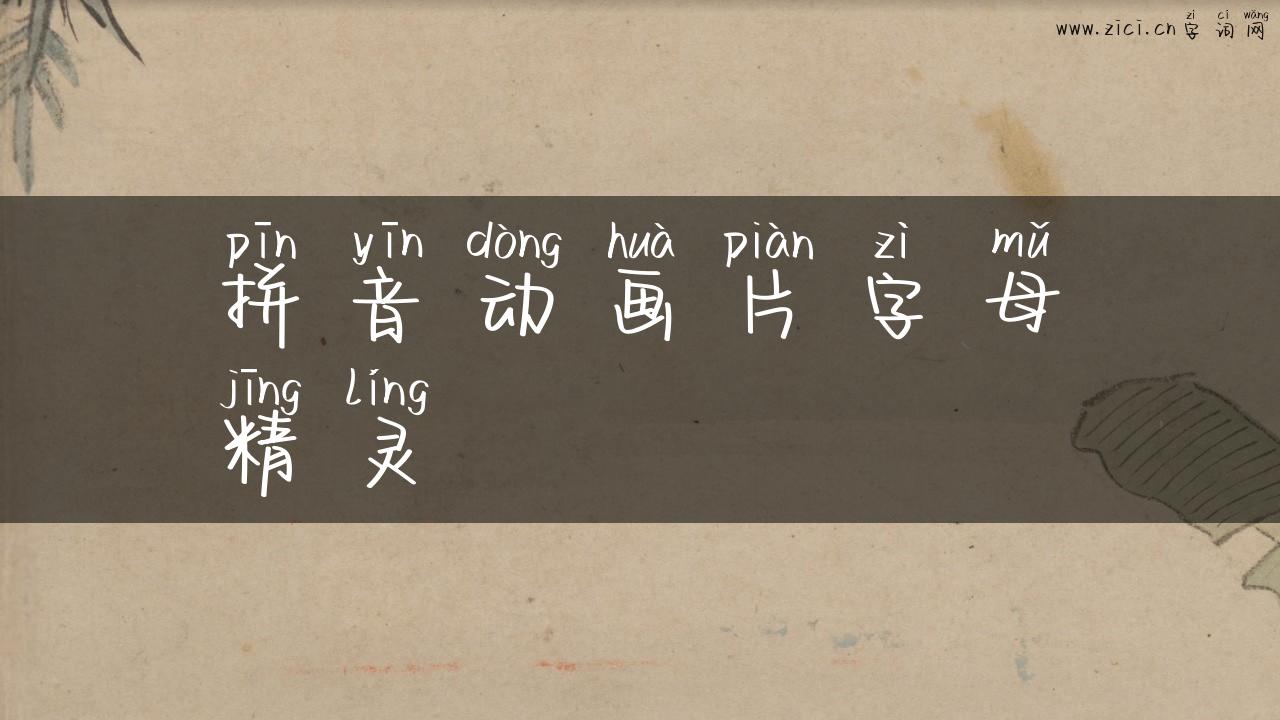 zì cí wǎng
www.zici.cn 字 词 网
pīn yīn dòng huà piàn zì mǔ
拼 音 动 画 片 字 母
jīng líng
精 灵